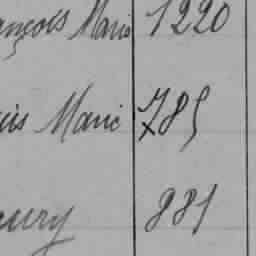 ançois Marie 1220
uis Marie 785
eury 881